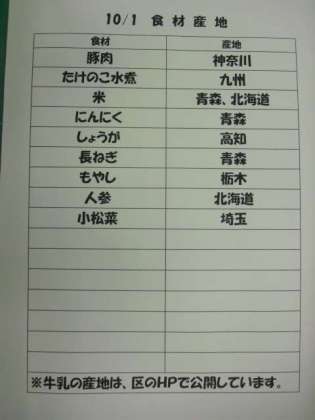 10/1 食材産地
食材 産地
豚肉 神奈川
たけのこ水煮 九州
米 青森、北海道
にんにく 青森
しょうが 高知
長ねぎ 青森
もやし 栃木
人参 北海道
小松菜 埼玉
※牛乳の産地は、区のHPで公開しています。